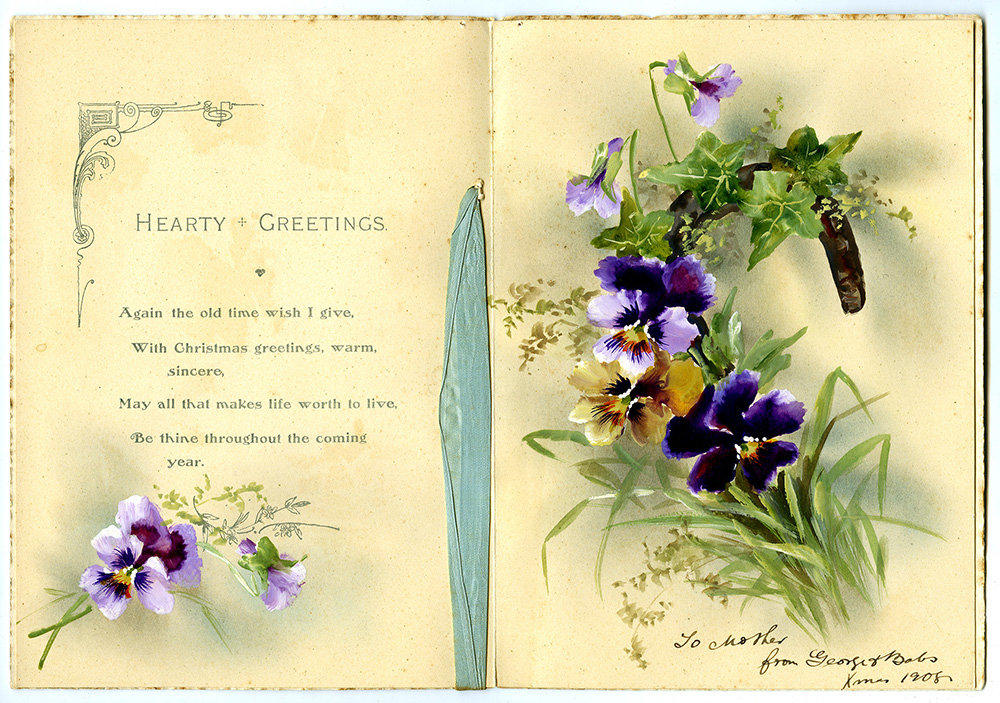 HEARTY + GREETINGS.
Again the old time wish I give,
With Christmas greetings, warm,
sincere,
May all that makes life worth to live,
Be thine throughout the coming
year.
To Mother
from George & Babs
Xmas 1908